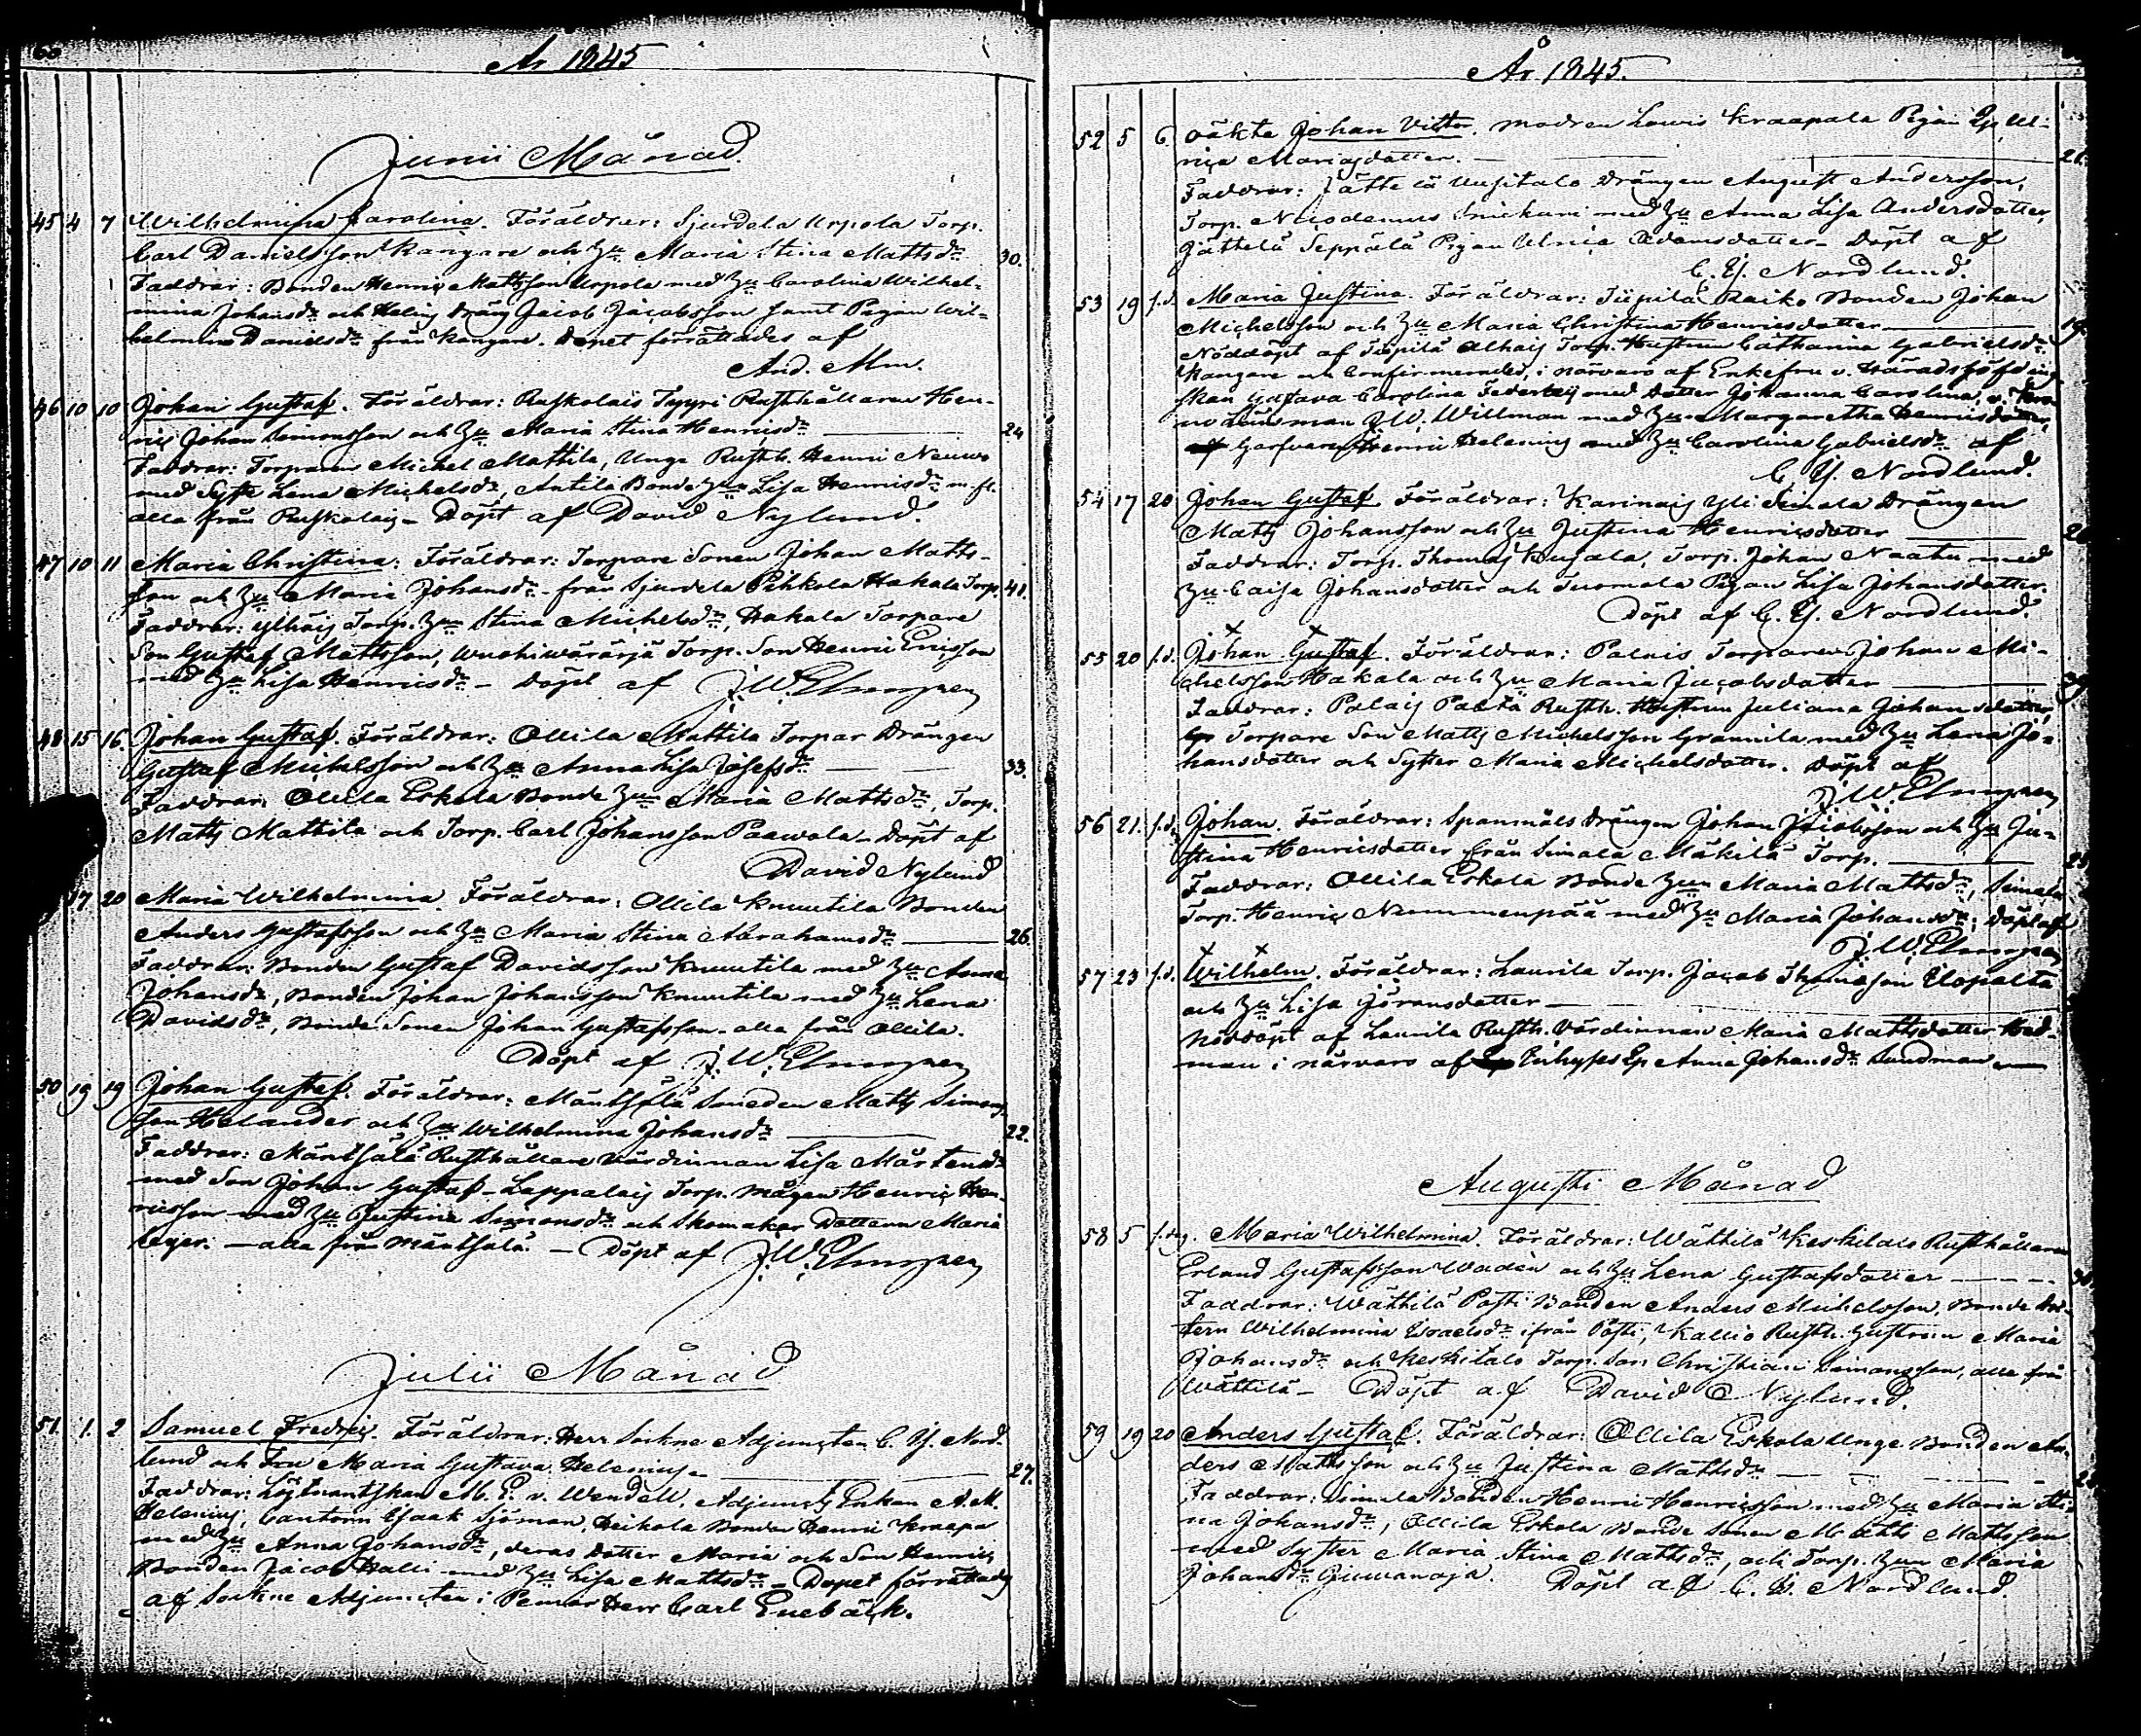 År 1845
Junii Månad.
45 4 7 Wilhelmina Carolina. Föräldrar: Sjurdela Urpola Torp.
Carl Danielsson Kangare och Hu Maria Stina Mattsdr 30.
Faddrar: Bonden Henric Mattsson Urpola med Hu Carolina Wilhel=
mina Johansdr och Dräng Jacob Jacobsson samt Pigan Wil=
helmina Danielsdr från Kangare. Dopet förrättades af
And. Alm.
46 10 10 Johan Gustaf. Föräldrar: Ruskolais Typpi Rusthållaren Hen-
ric Johan Simonsson och Hu Maria Stina Henricsdr 24
Faddrar: Torparen Michel Mattila, Unge Rusth. Henric
med Syster Lena Michelsdr, Antila Bonde Hun Lisa Henricsdr m. fl.
alla från Ruskolais - Döpt af David Nylund.
47 10 11 Maria Christina: Föräldrar: Torpare Sonen Johan Matts-
son och Hu Maria Johansdr - från Sjurdela Pihkola Hakala Torp. 41.
Faddrar: Ylhäis Torp. Hun Stina Michelsdr, Hakala Torpare
Son Gustaf Mattsson, Torp. Son Henric Ericsson
med Hu Lisa Henricsdr - Döpt af J. W. Elmgren
48 15 16 Johan Gustaf. Föräldrar: Ollila Mattila Torpar Drängen
Gustaf Michelsson och Hu Anna Lisa Josefsdr 33.
Faddrar: Ollila Eskola Bonde Hun Maria Mattsdr, Torp.
Matts Mattila och Torp. Carl Johansson Paawola - Döpt af
David Nylund
17 20 Maria Wilhelmina. Föräldrar: Ollila Knuutila Bonden
Anders Gustafsson och Hu Maria Stina Abrahamsdr 26.
Faddrar: Bonden Gustaf Davidsson Knuutila med Hu Anna
Johansdr, Bonden Johan Johansson Knuutila med Hu Lena
Davidsdr, Bonde Sonen Johan Gustafsson - alla från Ollila.
Döpt af J. W. Elmgren
50 19 19 Johan Gustaf. Föräldrar: Mäntsälä Smeden Matts Simons-
son Helander och Hu Wilhelmina Johansdr 22.
Faddrar: Mäntsälä Rusthållare Värdinnan Lisa Mårtensdr
med Son Johan Gustaf - Lappalais Torp. Mågen Henric Hen-
ricsson med Hu Justina Simonsdr och Skomakar Dottern Maria
- alla från Mäntsälä. - Döpt af J. W. Elmgren
Julii Månad
51. 1. 2 Samuel Fredric. Föräldrar: Herr Sockne Adjuncten C. Y. Nord-
lund och Fru Maria Gustava Helenius - 27.
Faddrar: Löjtnantskan M. E. v. Wendell, Adjuncts Enkan A. M.
Helenius, Cantorn Isaak Sjöman, Heikola Bonden Henric Kraapa
med Hu Anna Johansdr, deras dotter Maria och Son Henric,
Bonden Jacob Halli med Hu Lisa Mattsdr - Dopet förrättades
af Sockne Adjuncten i Pemar Herr Carl Enebäck.
År 1845.
52 5 6 oäkta Johan Victor. Modren Lowis Kraapala Pigan Ep Ul-
rica Mariasdotter. 21.
Faddrar: Jättelä Uusitalo Drängen August Andersson,
Torp. Nicodemus Snickari med Hu Anna Lisa Andersdotter,
Jättelä Seppälä Pigan Ulrica Adamsdotter - Döpt af
C. Y. Nordlund.
53 19 s.d. Maria Justina. Föräldrar: Tiipilä Raiko Bonden Johan
Michelsson och Hu Maria Christina Henricsdotter 19.
Nöddöpt af Tiipilä Alhais Torp. Hustrun Catharina Gabrielsdr
Kangare och Confirmerades, i närvaro af Enkefru v. Häradshöfding
skan Gustava Carolina Federley med dotter Johanna Carolina, v. Kro-
no länsman J. W. Willman med Hu Margaretha Henricsdotter,
Garfvaren Henric Helenius med Hu Carolina Gabrielsdr af
C. Y. Nordlund.
54 17 20 Johan Gustaf. Föräldrar: Karinais Yli Simala Drängen
Matts Johansson och Hu Justina Henricsdotter 26
Faddrar: Torp. Thomas Kujala, Torp. Johan Naatu med
Hu Caisa Johansdotter och Tuomola Pigan Lisa Johansdotter.
Döpt af C. Y. Nordlund.
55 20 s.d. Johan Gustaf. Föräldrar: Palais Torparen Johan Mi-
chelsson Hakala och Hu Maria Jacobsdotter 39
Faddrar: Palais Paeta Rusth. Hustrun Juliana Johansdotter,
Torpare Son Matts Michelsson Grannila med Hu Lena Jo-
hansdotter och Syster Maria Michelsdotter. Döpt af
J. W. Elmgren
56 21. s.d. Johan. Föräldrar: Spanmåls Drängen Johan Jacobsson och Hu Ju-
stina Henricsdotter från Simala Mäkilä Torp. 25
Faddrar: Ollila Eskola Bonde Hun Maria Mattsdr, Simala
Torp. Henric Nummenpää med Hu Maria Johansdr; Döpt af
J. W. Elmgren
57 23 s.d. Wilhelm. Föräldrar: Laurila Torp. Jacob Thomasson Elopelto
och Hu Lisa Göransdotter
Nöddöpt af Laurila Rusth. Värdinnan Maria Mattsdotter Hed-
man i närvaro af Inhyses Ep Anna Johansdr Sandman
Augusti Månad
58 5 s.dag. Maria Wilhelmina. Föräldrar: Wättilä Keskitalo Rusthållaren
Erland Gustafsson Wadén och Hu Lena Gustafsdotter 30
Faddrar: Wättilä Posti Bonden Anders Michelsson, Bonde dot-
tern Wilhelmina Israelsdr ifrån Posti, Kallio Rusth. Hustrun Maria
Johansdr och Keskitalo Torp. Son Christian Simonsson, alla från
Wättilä - Döpt af David Nylund.
59 19 20 Anders Gustaf. Föräldrar: Ollila Eskola Unge Bonden An-
ders Mattsson och Hu Justina Mattsdr
Faddrar: Simala Bonden Henric Henricsson med Hu Maria Sti-
na Johansdr, Ollila Eskola Bonde Sonen Matts Mattsson
med Syster Maria Stina Mattsdr, och Torp. Hun Maria
Johansdr Juwanoja. Döpt af C. Y. Nordlund